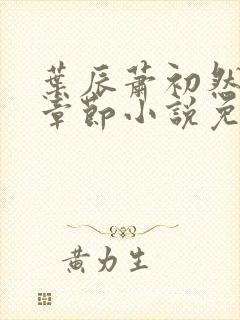 葉辰蕭初然
章節小說免
黃力生